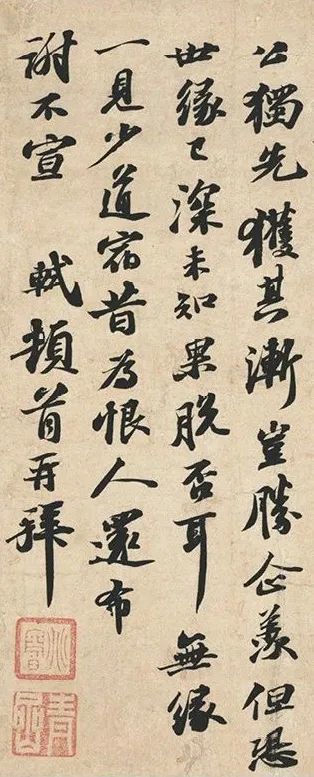 公獨先獲其漸豈勝企羨但恐
世緣已深未知果脫否耳無緣
一見少道宿昔為恨人還布
謝不宣 軾頓首再拜